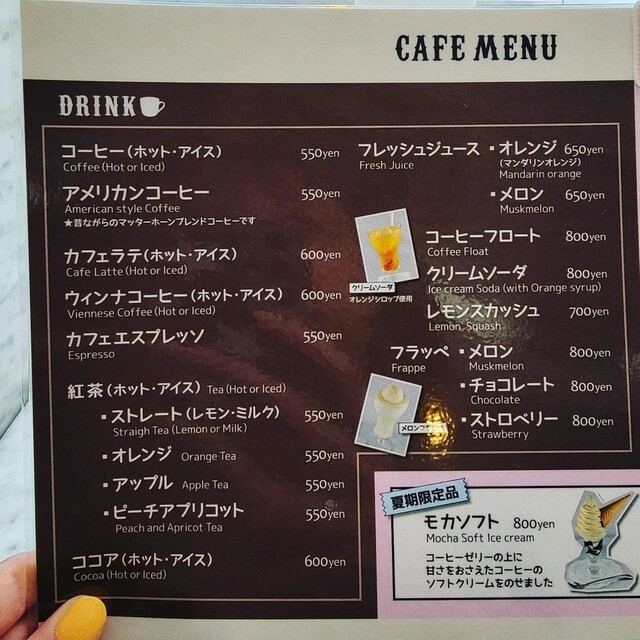 CAFE MENU
DRINK
コーヒー(ホット・アイス) 550yen
Coffee(Hot or Iced)
アメリカンコーヒー 550yen
American style Coffee
★昔ながらのマッターホーンブレンドコーヒーです
カフェラテ(ホット・アイス) 600yen
Cafe Latte(Hot or Iced)
ウィンナコーヒー(ホット・アイス) 600yen
Viennese Coffee(Hot or Iced)
カフェエスプレッソ 550yen
Espresso
紅茶(ホット・アイス) Tea(Hot or Iced)
▪ストレート(レモン・ミルク) 550yen
Straigh Tea(Lemon or Milk)
▪オレンジ Orange Tea 550yen
▪アップル Apple Tea 550yen
▪ピーチアプリコット 550yen
Peach and Apricot Tea
ココア(ホット・アイス) 600yen
Cocoa(Hot or Iced)
フレッシュジュース ▪オレンジ 650yen
Fresh Juice (マンダリンオレンジ)
Mandarin orange
▪メロン 650yen
Muskmelon
コーヒーフロート 800yen
Coffee Float
クリームソーダ 800yen
Ice cream Soda(with Orange syrup)
クリームソーダ
オレンジシロップ使用
レモンスカッシュ 700yen
Lemon Squash
フラッペ ▪メロン 800yen
Frappe Muskmelon
▪チョコレート 800yen
Chocolate
▪ストロベリー 800yen
Strawberry
夏期限定品
モカソフト 800yen
Mocha Soft Ice cream
コーヒーゼリーの上に
甘さをおさえたコーヒーの
ソフトクリームをのせました